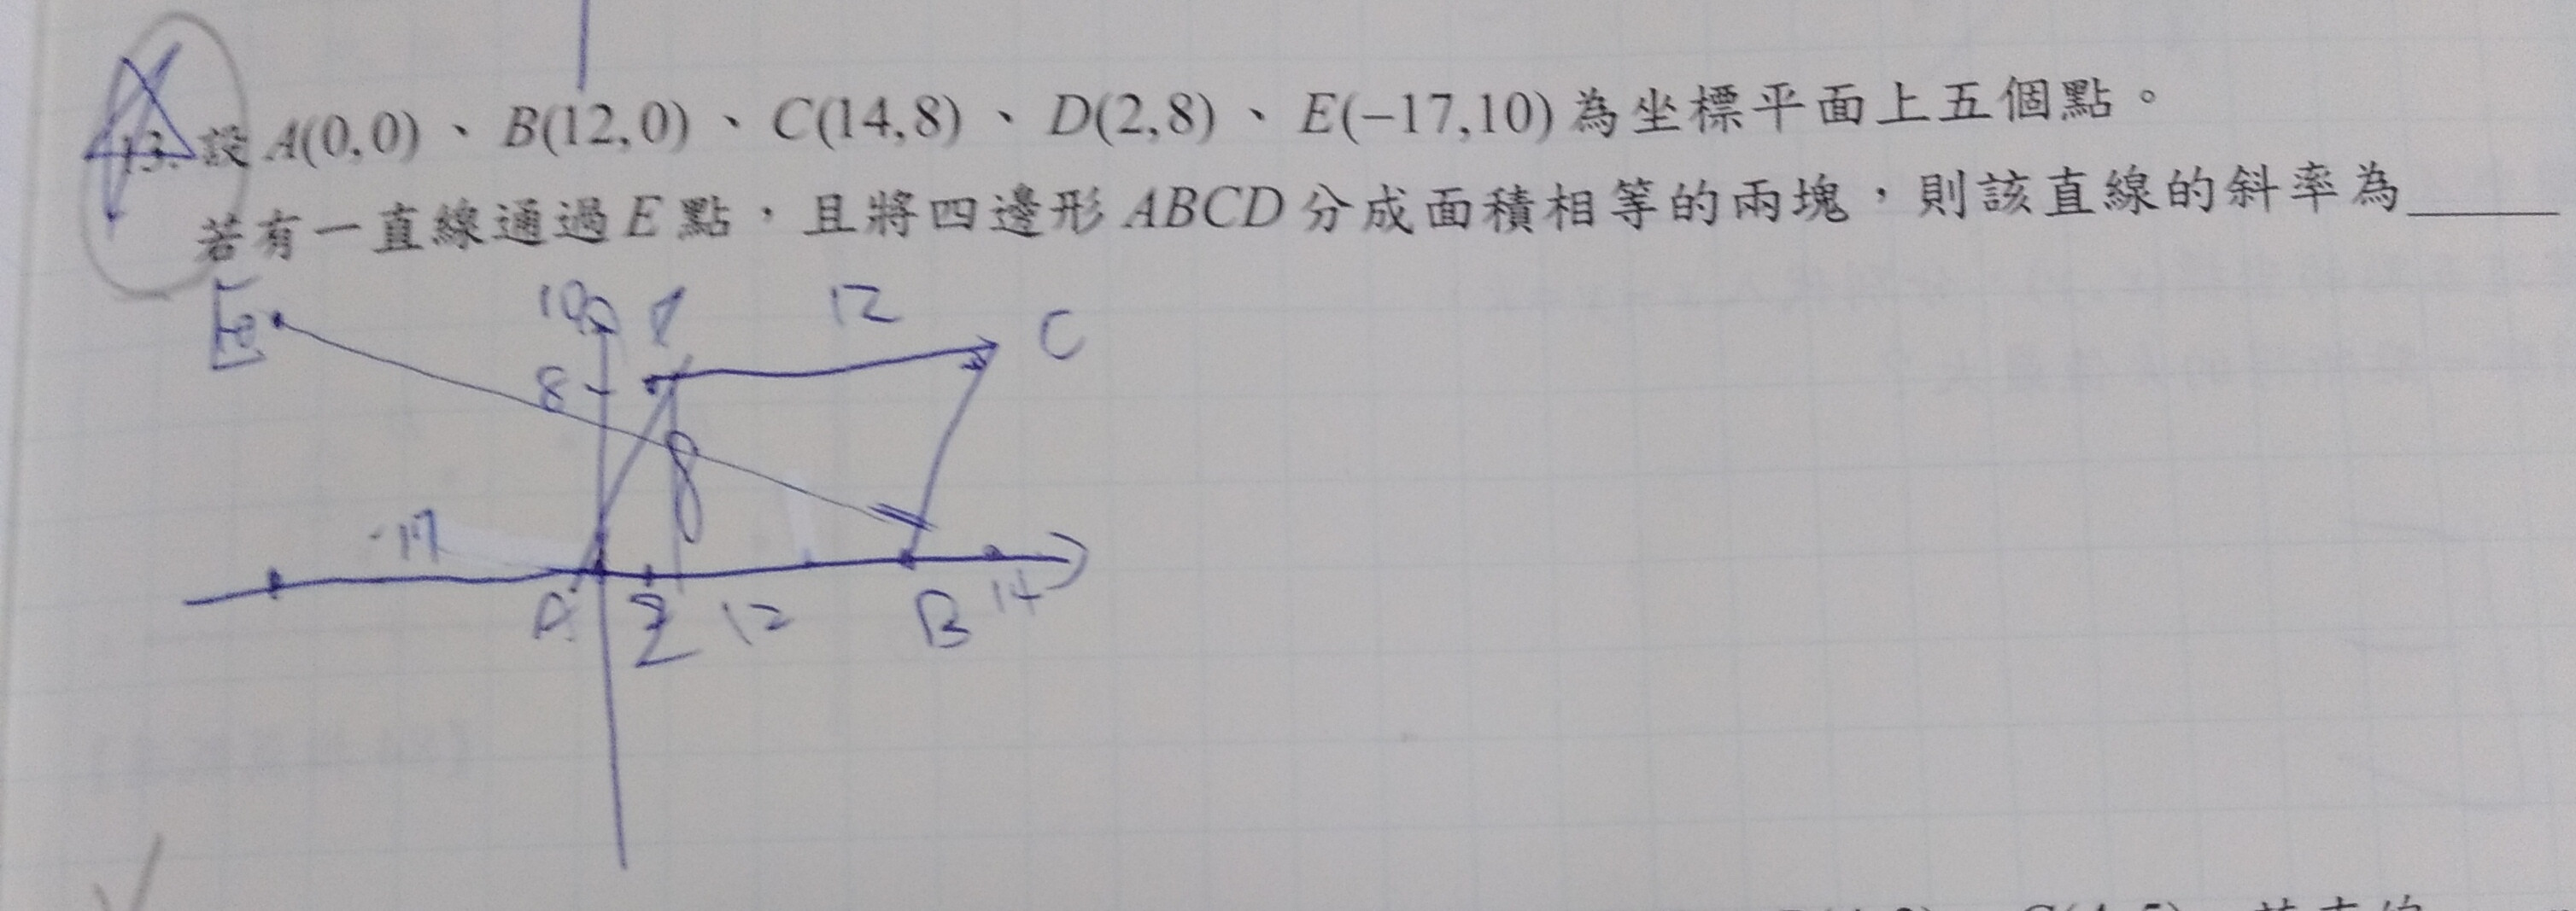 13. 設A(0,0)、B(12,0)、C(14,8)、D(2,8)、E(−17,10)為坐標平面上五個點。
若有一直線通過E點，且將四邊形ABCD分成面積相等的兩塊，則該直線的斜率為
E
10
12
C
8
8
-17
A
2
12
B
14